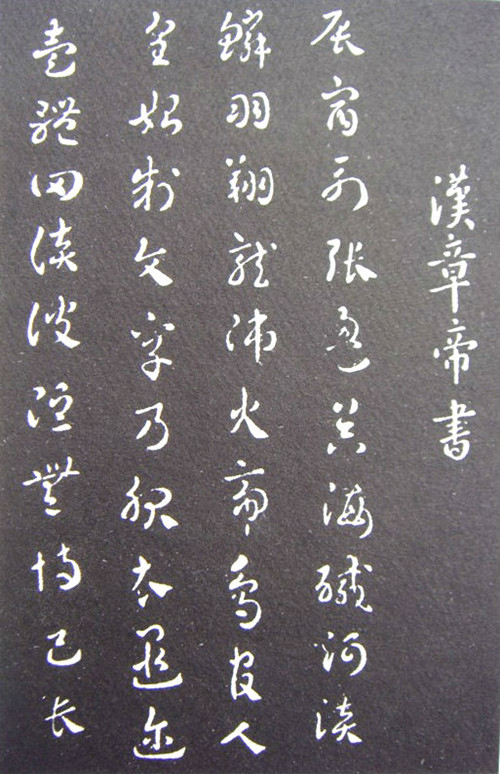 漢章帝書
辰宿列張海鹹河淡
鱗羽翔龍師火帝鳥官人
皇始制文字乃服衣遐邇
壹體罔談彼短靡恃己長